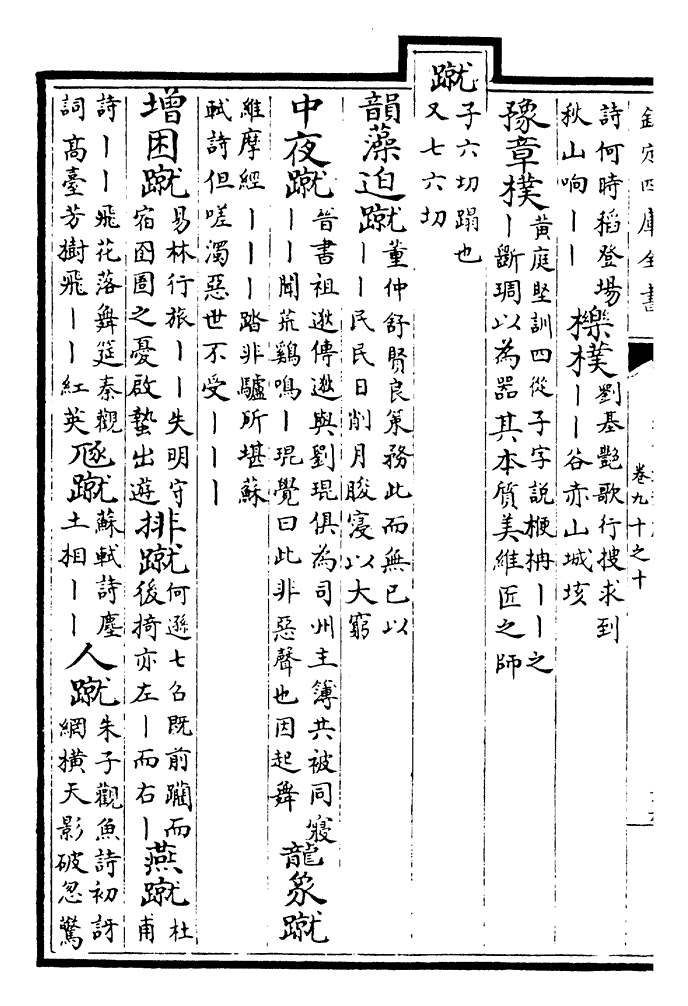 欽定四庫全書
卷九十之十
詩何時稻登場
秋山响丨丨
櫟樸
劉基艷歌行搜求到
丨丨谷赤山城垓
豫章樸
黄庭堅訓四從子字説楩柟丨丨之
丨斵琱以為器其本質美維匠之師
蹴
子六切蹋也
又七六切
韻藻迫蹴
董仲舒賢良策務此而無已以
丨丨民民日削月朘寖以大窮
中夜蹴
晉書祖逖傳逖與劉琨俱為司州主簿共被同寢
丨丨聞荒鷄鳴丨琨覺曰此非惡聲也因起舞
龍象蹴
維摩經丨丨丨踏非驢所堪蘇
軾詩但嗟濁惡世不受丨丨丨
增困蹴
易林行旅丨丨失明守
宿囹圄之憂啟蟄出遊
排蹴
何遜七召既前躪而
後掎亦左丨而右丨
燕蹴
杜
甫
詩丨丨飛花落舞筵秦觀
詞高臺芳樹飛丨丨紅英
豗蹴
蘇軾詩塵
土相丨丨
人蹴
朱子觀魚詩初訝
網横天影破忽驚